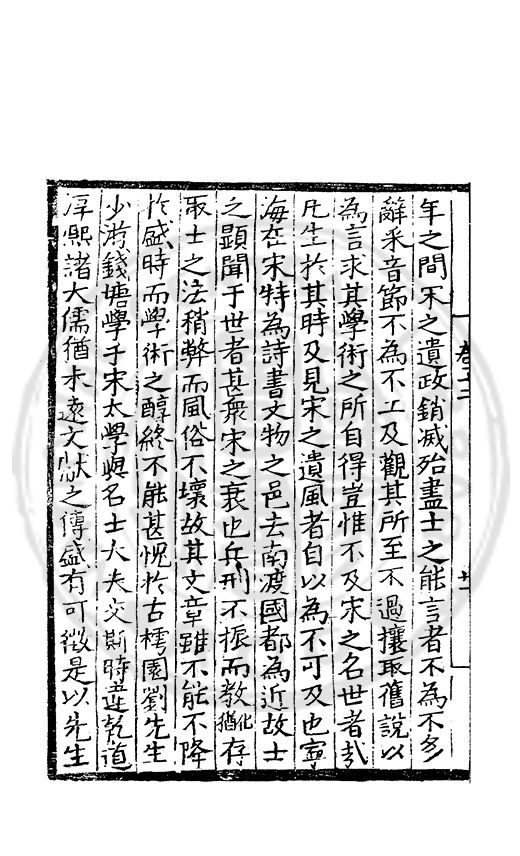 卷十二
廿一
年之間宋之遺政銷滅殆盡士之能言者不為不多
辭采音節不為不工及觀其所至不過攘取舊說以
為言求其學術之所自得豈惟不及宋之名世者哉
凡生於其時及見宋之遺風者自以為不可及也寧
海在宋特為詩書文物之邑去南渡國都為近故士
之顯聞于世者甚衆宋之衰也兵刑不振而教化猶存
取士之法稍弊而風俗不壞故其文章雖不能不降
於盛時而學術之醇終不能甚愧於古樗園劉先生
少游錢塘學于宋太學與名士大夫交斯時去乾道
淳熙諸大儒猶未遠文獻之傳盛有可徵是以先生